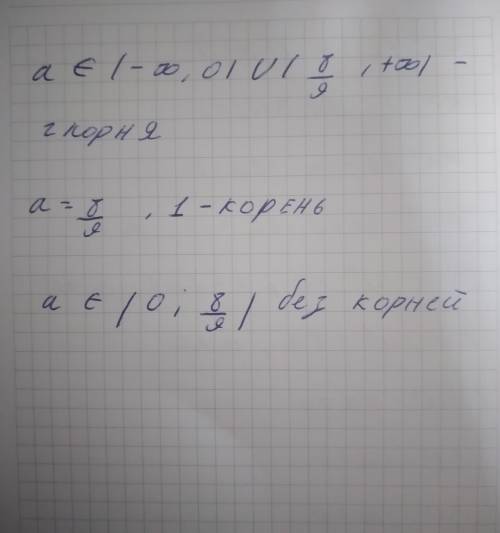 a ∈ (-∞, 0) ∪ ( 8/9 , +∞) -
2 корня
a = 8/9 , 1 - корень
a ∈ ( 0 ; 8/9 ) без корней